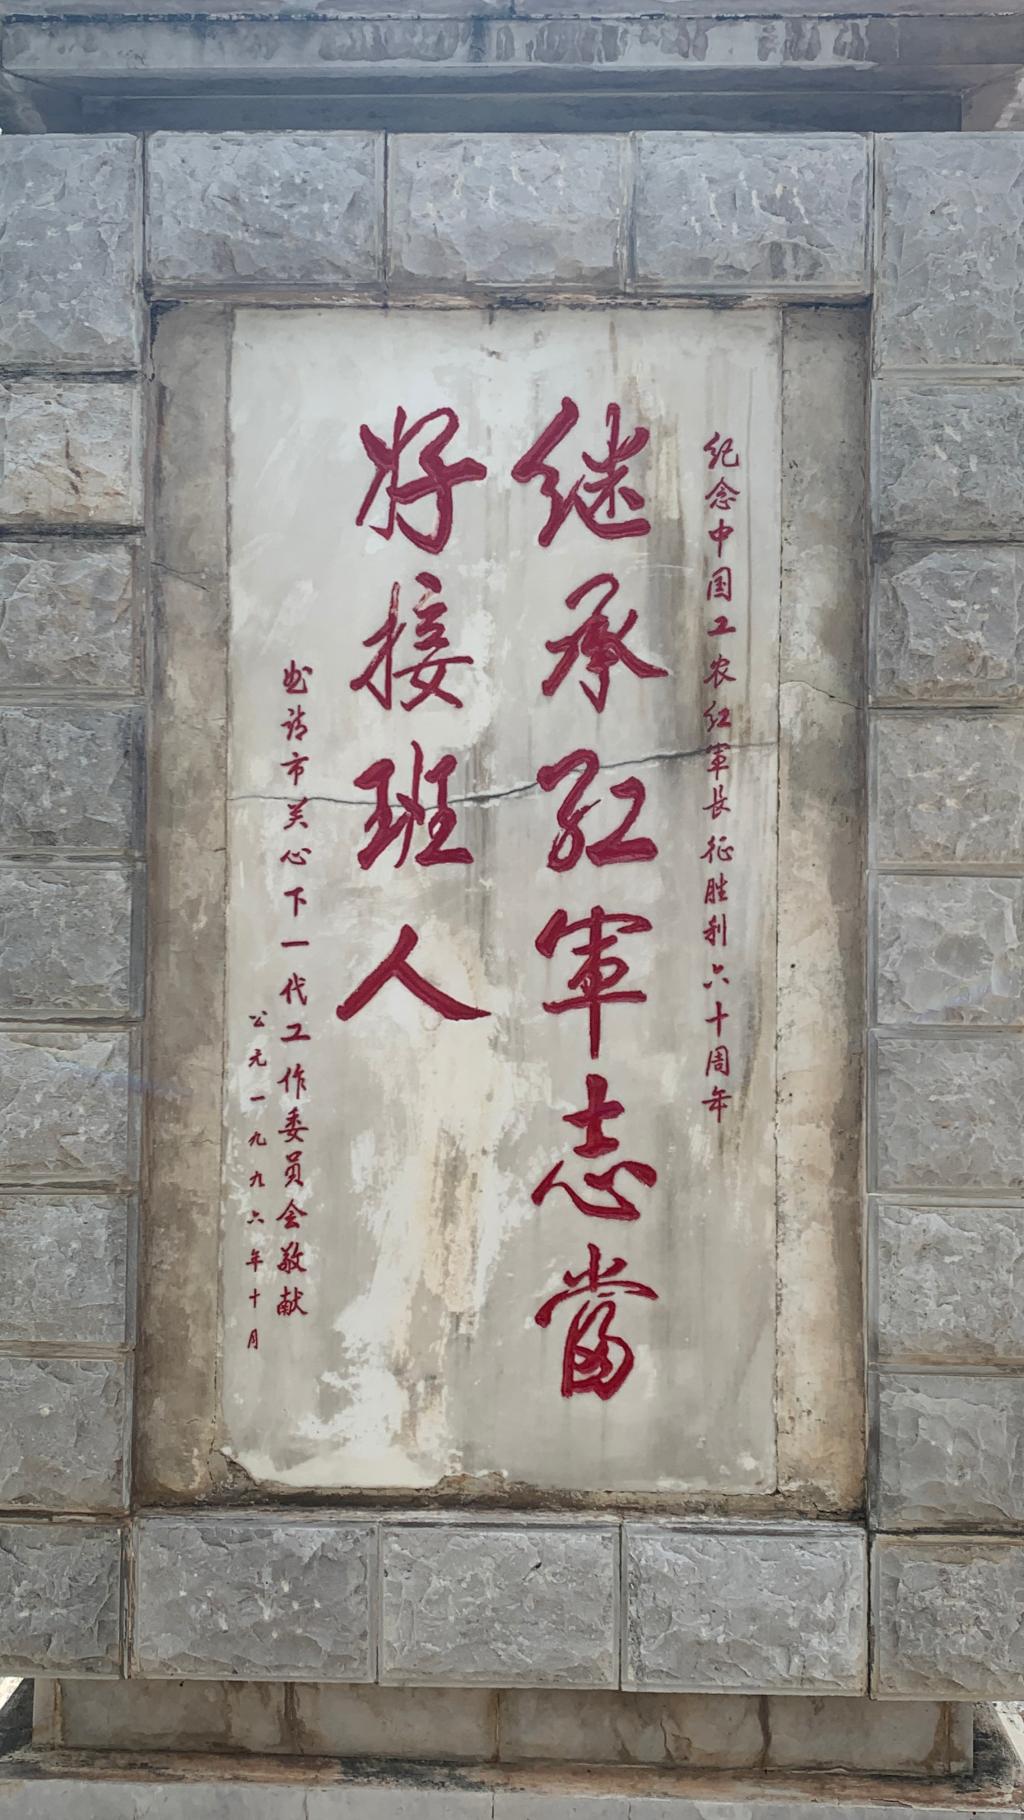 纪念中国工农红軍長征胜利六十周年
继承红軍志當
好接班人
曲靖市关心下一代工作委员会敬献
公元一九九六年十月